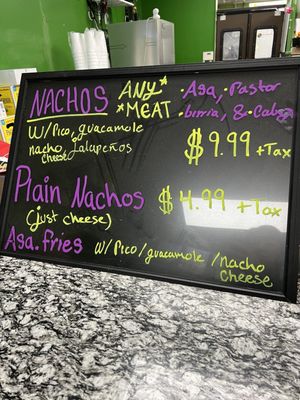 NACHOS ANY *MEAT* · Asa, · Pastor
· birria, & Cabeza
W/Pico, guacamole
nacho cheese, Jalapeños
$9.99 +Tax
Plain Nachos $4.99 +Tax
(just cheese)
Asa. fries W/Pico/guacamole/nacho cheese